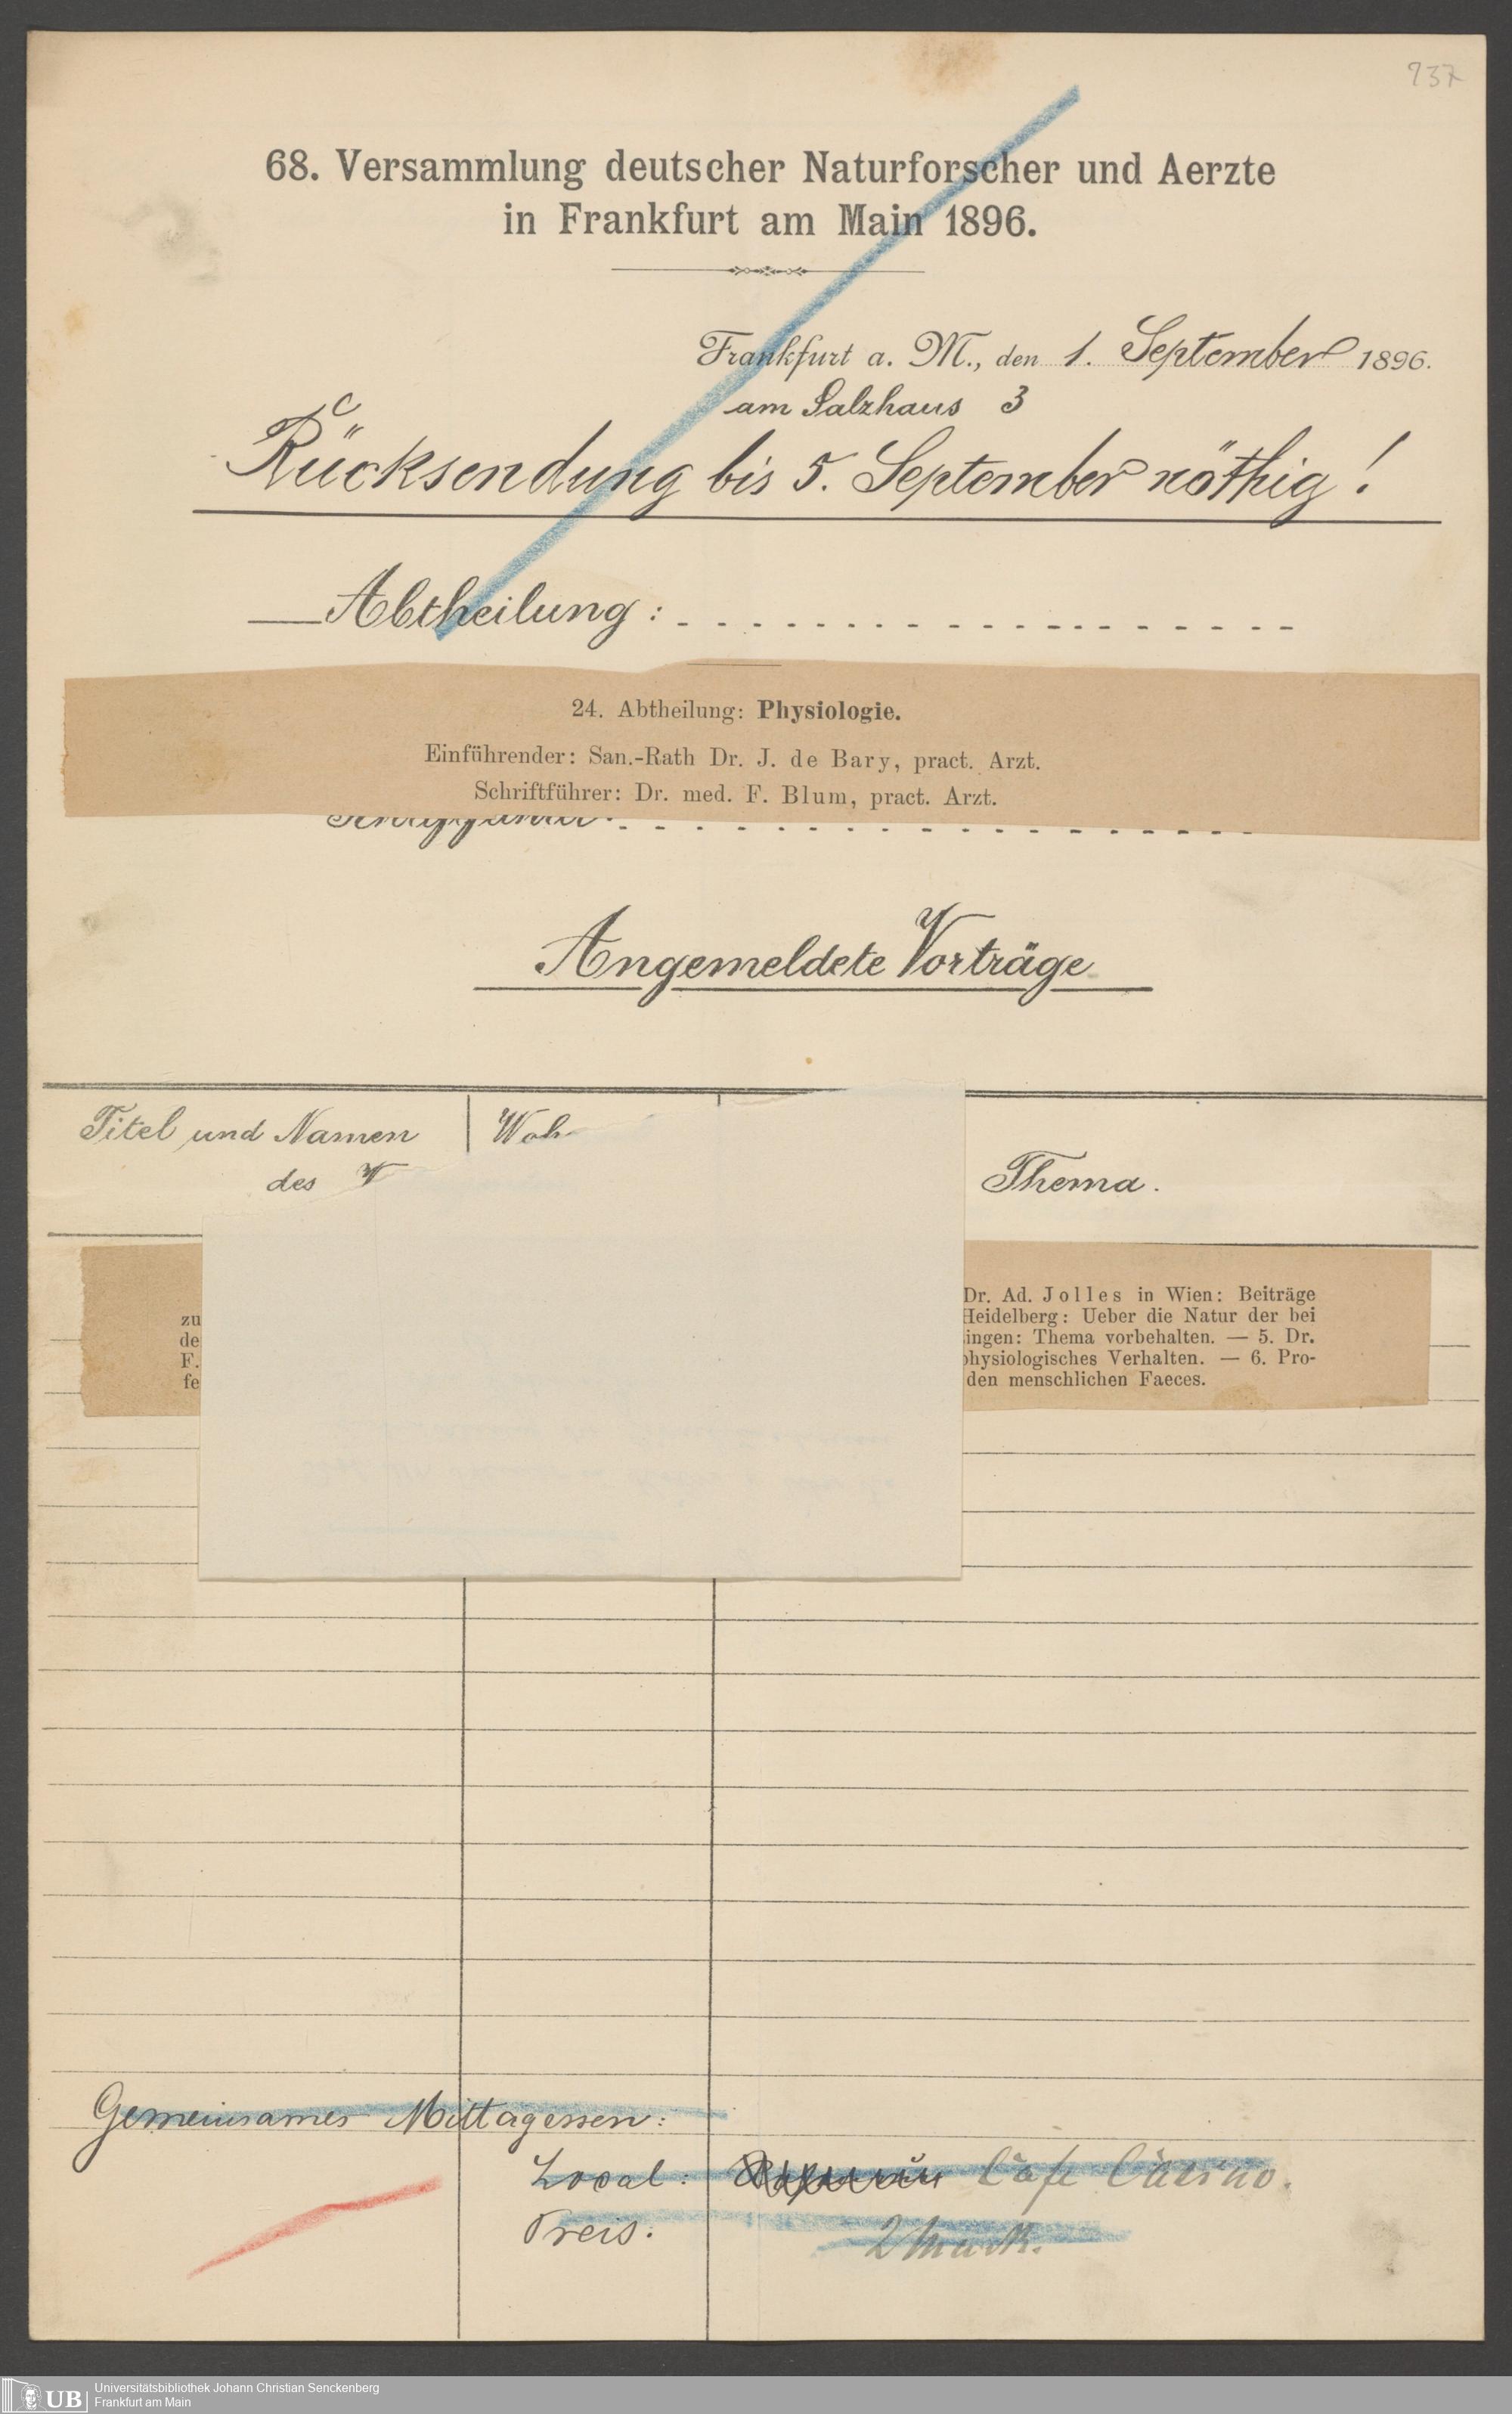 737
68. Versammlung deutscher Naturforscher und Aerzte
in Frankfurt am Main 1896.
Frankfurt a. M., den 1. September 1896.
am Salzhaus 3
Rücksendung bis 5. September nöthig!
Abtheilung:
24. Abtheilung: Physiologie.
Einführender: San.-Rath Dr. J. de Bary, pract. Arzt.
Schriftführer: Dr. med. F. Blum, pract. Arzt.
Angemeldete Vorträge
Titel und Namen
des V
Woh
Thema.
Dr. Ad. Jolles in Wien: Beiträge
zu Heidelberg: Ueber die Natur der bei
de ingen: Thema vorbehalten. — 5. Dr.
F. physiologisches Verhalten. — 6. Pro-
fe den menschlichen Faeces.
Gemeinsames Mittagessen:
Local: Café Casino.
Preis: 2 Mark.
UB Universitätsbibliothek Johann Christian Senckenberg
Frankfurt am Main